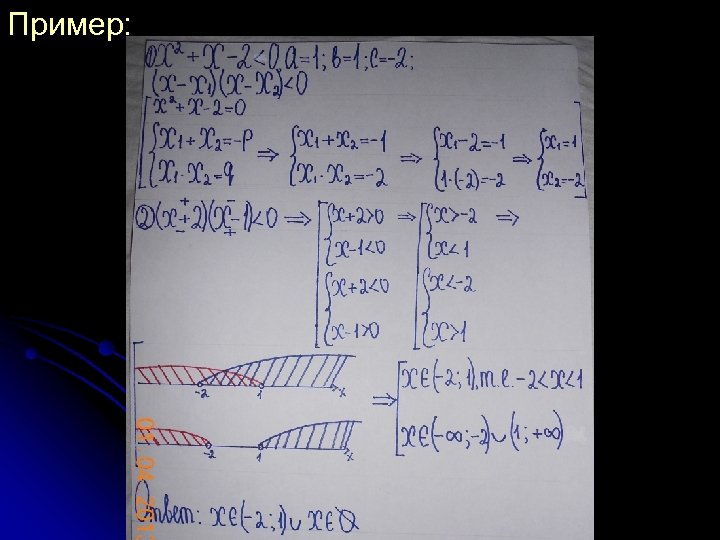 Пример:
1) x² + x - 2 < 0, a = 1; b = 1; c = -2;
(x - x₁)(x - x₂) < 0
[ x² + x - 2 = 0
{ x₁ + x₂ = -p ⇒ { x₁ + x₂ = -1 ⇒ { x₁ - 2 = -1 ⇒ { x₁ = 1
{ x₁ · x₂ = q { x₁ · x₂ = -2 { 1 · (-2) = -2 { x₂ = -2 ]
+ -
2) (x + 2)(x - 1) < 0 ⇒ [ { x + 2 > 0 ⇒ [ { x > -2 ⇒
- +
{ x - 1 < 0 { x < 1
{ x + 2 < 0 { x < -2
{ x - 1 > 0 { x > 1
-2 1 x
⇒ [ x ∈ (-2; 1), т.е. -2 < x < 1
-2 1 x
x ∈ (-∞; -2) ∪ (1; +∞)
Ответ: x ∈ (-2; 1) ∪ x ∈ ∅
01 04 201